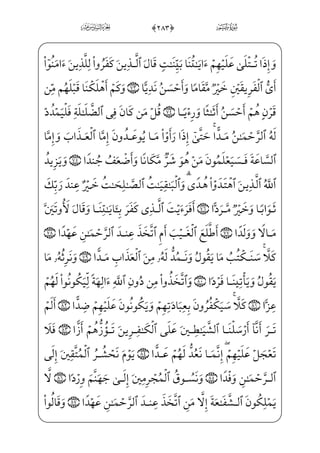 ﴿٢٨٣﴾
وَإِذَا تُتْلَىٰ عَلَيْهِمْ ءَايَٰتُنَا بَيِّنَٰتٍ قَالَ ٱلَّذِينَ كَفَرُوا۟ لِلَّذِينَ ءَامَنُوٓا۟
أَىُّ ٱلْفَرِيقَيْنِ خَيْرٌ مَّقَامًا وَأَحْسَنُ نَدِيًّا ﴿٧٣﴾ وَكَمْ أَهْلَكْنَا قَبْلَهُم مِّن
قَرْنٍ هُمْ أَحْسَنُ أَثَٰثًا وَرِءْيًا ﴿٧٤﴾ قُلْ مَن كَانَ فِى ٱلضَّلَٰلَةِ فَلْيَمْدُدْ
لَهُ ٱلرَّحْمَٰنُ مَدًّا ۚ حَتَّىٰٓ إِذَا رَأَوْا۟ مَا يُوعَدُونَ إِمَّا ٱلْعَذَابَ وَإِمَّا
ٱلسَّاعَةَ فَسَيَعْلَمُونَ مَنْ هُوَ شَرٌّ مَّكَانًا وَأَضْعَفُ جُندًا ﴿٧٥﴾ وَيَزِيدُ
ٱللَّهُ ٱلَّذِينَ ٱهْتَدَوْا۟ هُدًى ۗ وَٱلْبَٰقِيَٰتُ ٱلصَّٰلِحَٰتُ خَيْرٌ عِندَ رَبِّكَ
ثَوَابًا وَخَيْرٌ مَّرَدًّا ﴿٧٦﴾ أَفَرَءَيْتَ ٱلَّذِى كَفَرَ بِـَٔايَٰتِنَا وَقَالَ لَأُوتَيَنَّ
مَالًا وَوَلَدًا ﴿٧٧﴾ أَطَّلَعَ ٱلْغَيْبَ أَمِ ٱتَّخَذَ عِندَ ٱلرَّحْمَٰنِ عَهْدًا ﴿٧٨﴾
كَلَّا ۚ سَنَكْتُبُ مَا يَقُولُ وَنَمُدُّ لَهُۥ مِنَ ٱلْعَذَابِ مَدًّا ﴿٧٩﴾ وَنَرِثُهُۥ مَا
يَقُولُ وَيَأْتِينَا فَرْدًا ﴿٨٠﴾ وَٱتَّخَذُوا۟ مِن دُونِ ٱللَّهِ ءَالِهَةً لِّيَكُونُوا۟ لَهُمْ
عِزًّا ﴿٨١﴾ كَلَّا ۚ سَيَكْفُرُونَ بِعِبَادَتِهِمْ وَيَكُونُونَ عَلَيْهِمْ ضِدًّا ﴿٨٢﴾ أَلَمْ
تَرَ أَنَّآ أَرْسَلْنَا ٱلشَّيَٰطِينَ عَلَى ٱلْكَٰفِرِينَ تَؤُزُّهُمْ أَزًّا ﴿٨٣﴾ فَلَا
تَعْجَلْ عَلَيْهِمْ ۖ إِنَّمَا نَعُدُّ لَهُمْ عَدًّا ﴿٨٤﴾ يَوْمَ نَحْشُرُ ٱلْمُتَّقِينَ إِلَى
ٱلرَّحْمَٰنِ وَفْدًا ﴿٨٥﴾ وَنَسُوقُ ٱلْمُجْرِمِينَ إِلَىٰ جَهَنَّمَ وِرْدًا ﴿٨٦﴾ لَّا
يَمْلِكُونَ ٱلشَّفَٰعَةَ إِلَّا مَنِ ٱتَّخَذَ عِندَ ٱلرَّحْمَٰنِ عَهْدًا ﴿٨٧﴾ وَقَالُوا۟